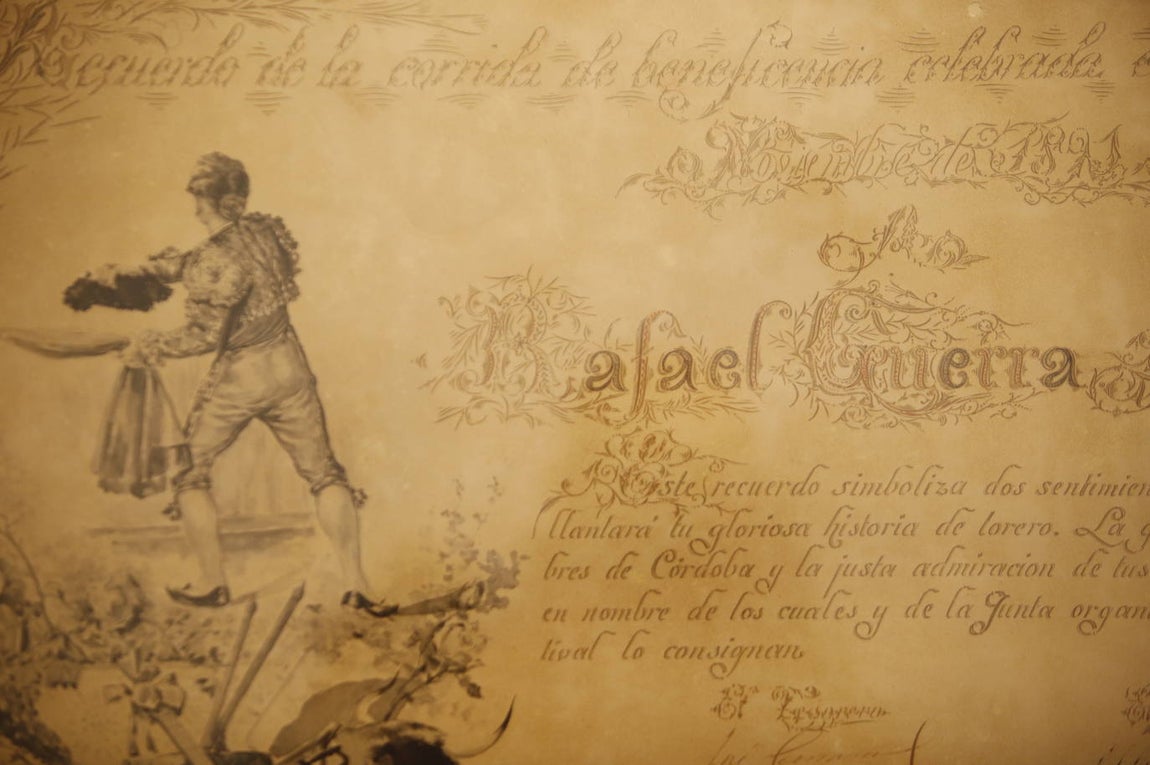 Recuerdo de la corrida de beneficencia celebrada e
Noviembre de 1891
A
Rafael Guerra
Este recuerdo simboliza dos sentimien
llantará tu gloriosa historia de torero. La g
bres de Córdoba y la justa admiracion de tus
en nombre de los cuales y de la Junta organi
tival lo consignan
El Tesorero